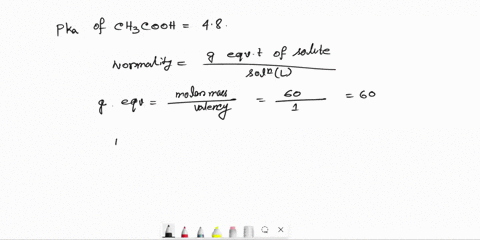 Pka of CH3COOH = 4.8.
Normality = g eqv.t of solute / soln (L)
g. eqv = molar mass / valency = 60 / 1 = 60